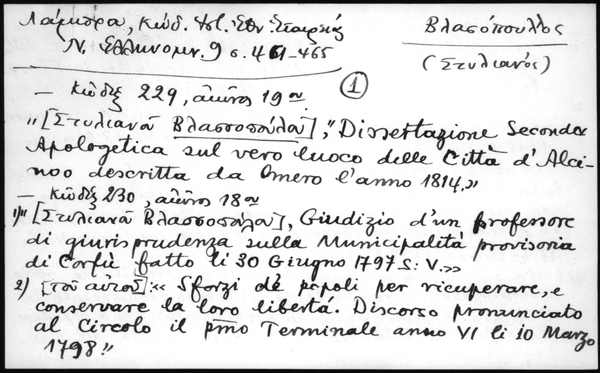 Λάμπρα, Κώδ. Ἱστ. Ἐθν. Ἑταιρείας
Ν. Ἑλληνομν. 9 σ. 461-465
Βλασόπουλος
(Στυλιανός)
— Κῶδιξ 229, αἰῶνος 19ου
①
„[Στυλιανοῦ Βλασσοπούλου], „Dissertazione Seconda
Apologetica sul vero luoco delle Città d'Alci-
noo descritta da Omero l'anno 1814.»
— Κῶδιξ 230, αἰῶνος 18ου
1)" [Στυλιανοῦ Βλασσοπούλου], Giudizio d'un professore
di giurisprudenza sulla Municipalità provisoria
di Corfù fatto li 30 Giugno 1797 S: V.»
2) [τοῦ αὐτοῦ]: «Sforzi de popoli per ricuperare, e
conservare la loro libertá. Discorso pronunciato
al Circolo il pmo Terminale anno VI li 10 Marzo
1798"